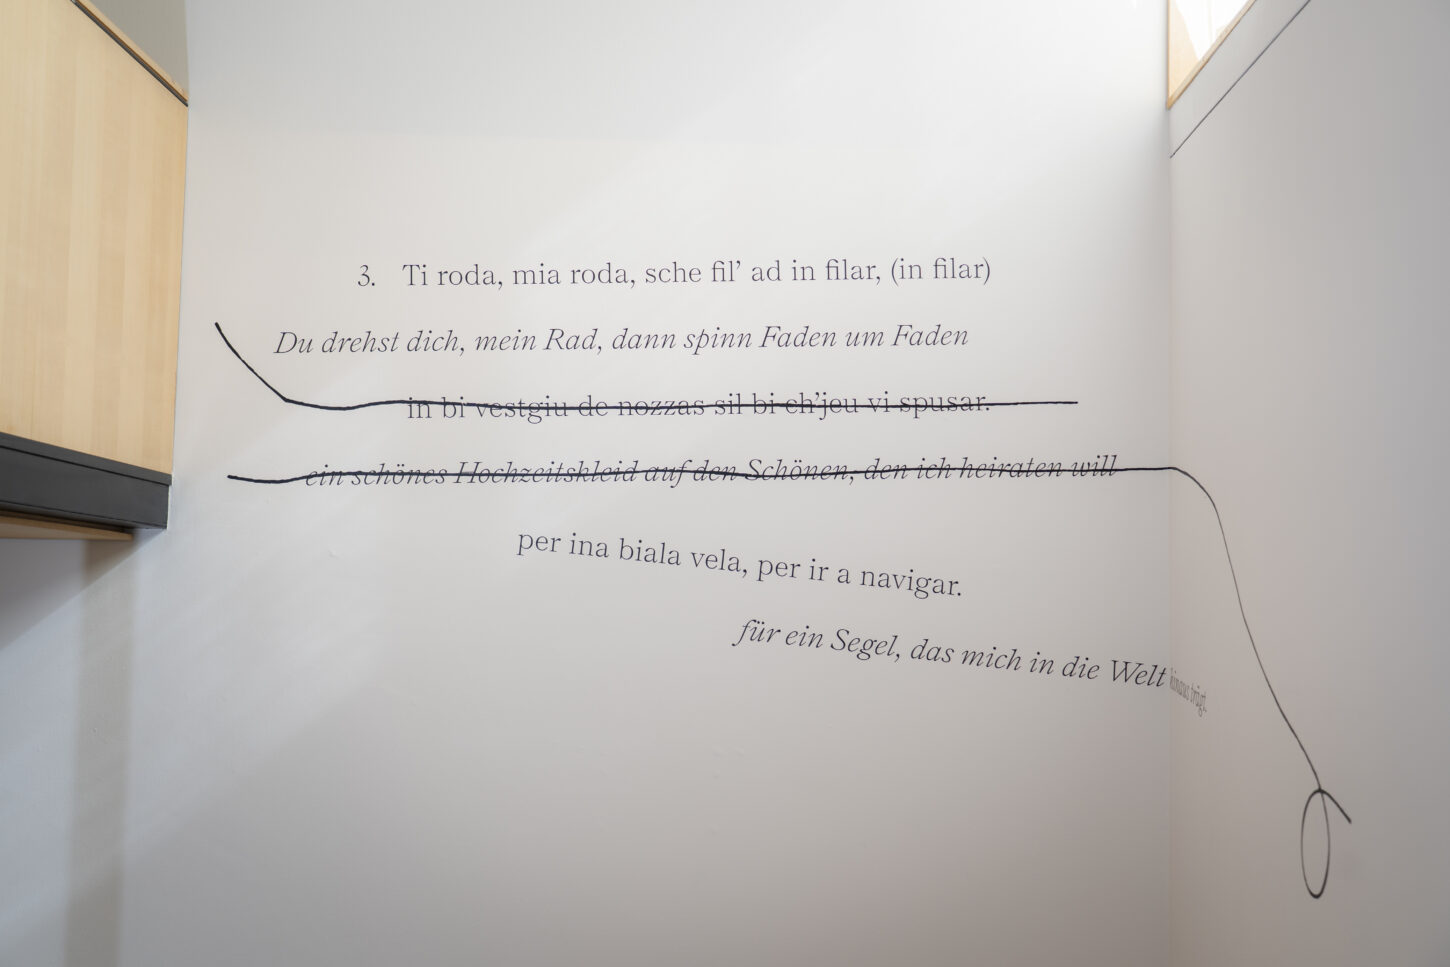 3. Ti roda, mia roda, sche fil’ ad in filar, (in filar)
Du drehst dich, mein Rad, dann spinn Faden um Faden
in bi vestgiu de nozzas sil bi ch’jeu vi spusar.
ein schönes Hochzeitskleid auf den Schönen, den ich heiraten will
per ina biala vela, per ir a navigar.
für ein Segel, das mich in die Welt hinaus trägt.